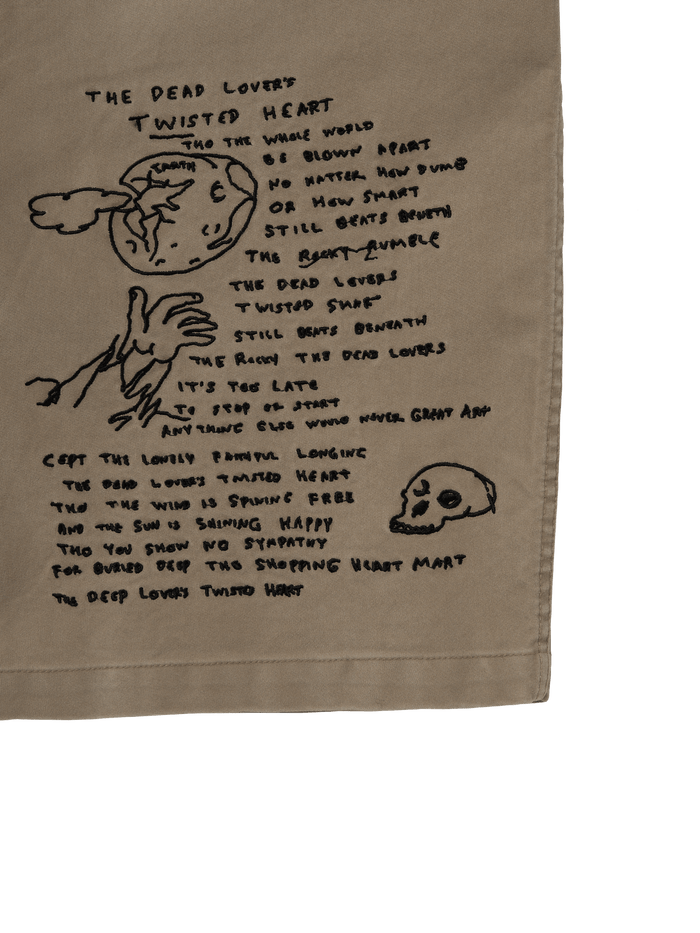 THE DEAD LOVER'S
TWISTED HEART
THO THE WHOLE WORLD
EARTH
BE BLOWN APART
NO MATTER HOW DUMB
OR HOW SMART
STILL BEATS BENETH
THE ROCKY RUMBLE
THE DEAD LOVERS
TWISTED
STILL BEATS BENEATH
THE ROCKY THE DEAD LOVERS
IT'S TOO LATE
TO STOP OR START
ANYTHING ELSE WOULD NEVER GREAT ART
CEPT THE LONELY FAITHFUL LONGING
THE DEAD LOVER'S TWISTED HEART
THO THE WIND IS SPINING FREE
AND THE SUN IS SHINING HAPPY
THO YOU SHOW NO SYMPATHY
FOR BURIED DEEP THO SHOPPING HEART MART
THE DEEP LOVER'S TWISTED HEART